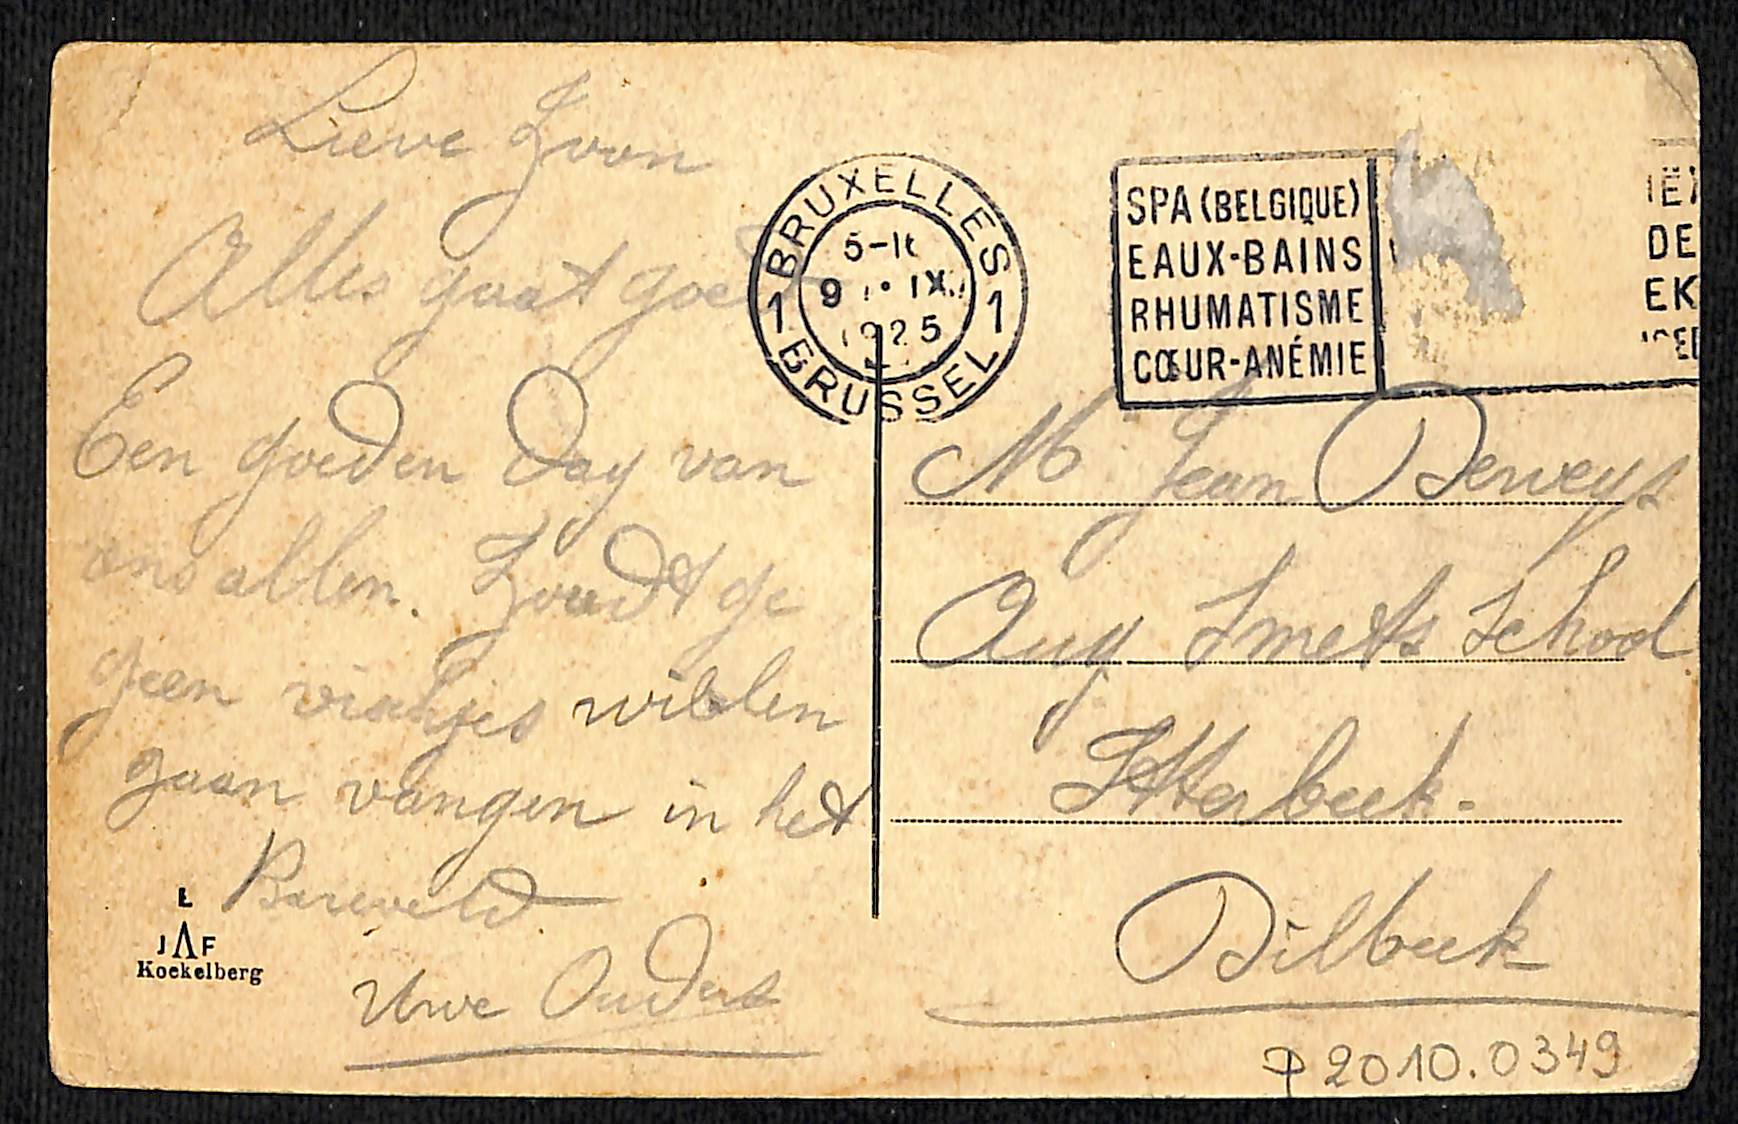 Lieve Zoon
Alles gaat goed
Een goeden Dag van
ons allen. Zoudt ge
geen vischjes willen
gaan vangen in het
Bareveld
Uwe Ouders
E
J F
Koekelberg
BRUXELLES
1 1
5-1
9 IX
1925
BRUSSEL
SPA (BELGIQUE)
EAUX-BAINS
RHUMATISME
CŒUR-ANÉMIE
DE
EK
M Jean Deweys
Aug Smets School
Itterbeek.
Dilbeek
P 2010.0349